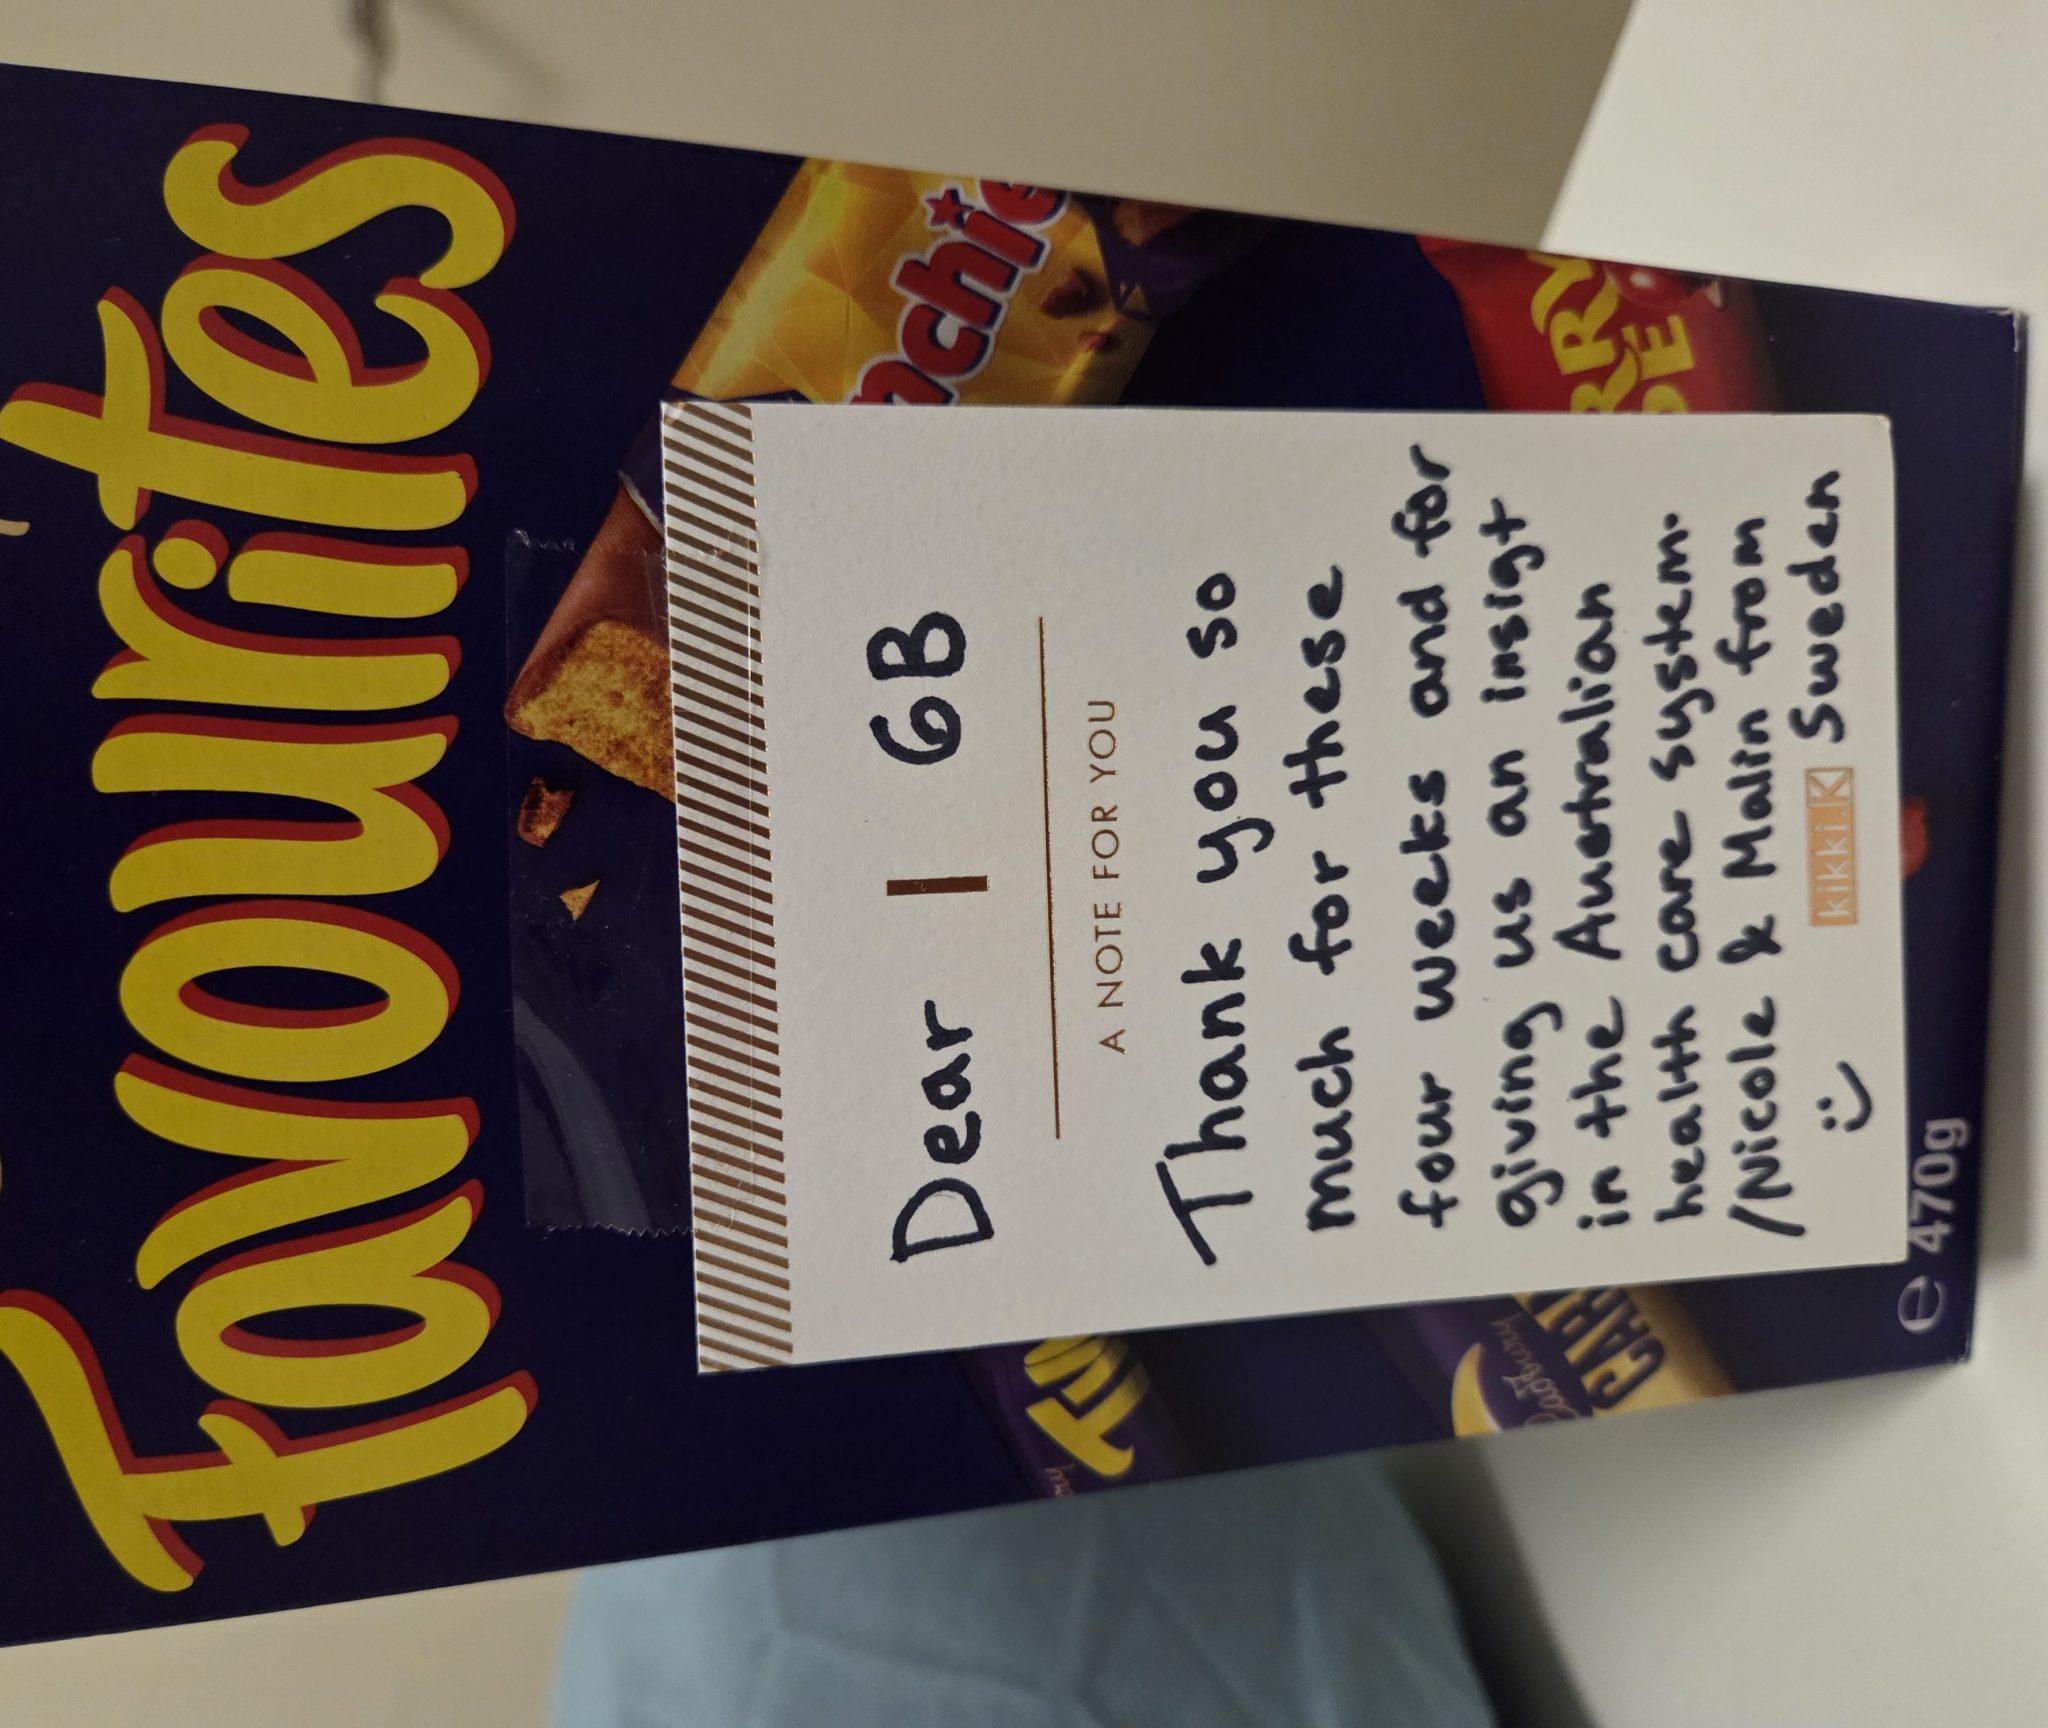 Favourites
nchie
RRY
PE
Dear | 6B
A NOTE FOR YOU
Thank you so
much for these
four weeks and for
giving us an insigt
in the Australian
health care system.
/Nicole & Malin from
:) kikki.K Sweden
TW
Cadbury
CAR
e 470g